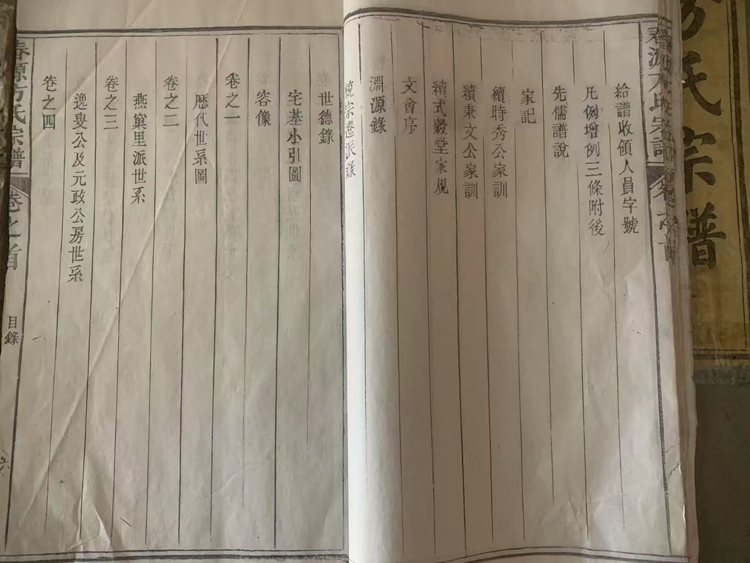 氏宗譜
春源方氏宗譜
卷之首
給譜收領人員字號
凡例增例三條附後
先儒譜說
家記
續時秀公家訓
續秉文公家訓
續式穀堂家規
文會序
淵源錄
宗遷派錄
世德錄
宅基小引圖
容像
卷之一
歷代世系圖
卷之二
燕巢里派世系
卷之三
逸叟公及元政公房世系
卷之四
春源方氏宗譜
卷之首
目錄
六